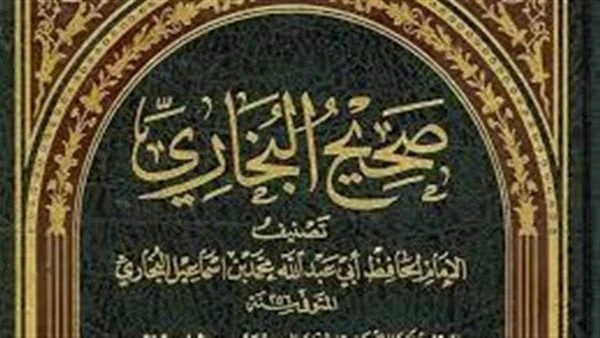 صَحِيحُ البُخَارِيِّ
تَصْنِيف
الإِمَامِ الحَافِظِ أَبِي عَبْدِ اللَّه مُحَمَّدِ بْنِ اسْمَاعِيل البُخَارِيّ
المتَوفّى سَنَة ٢٥٦